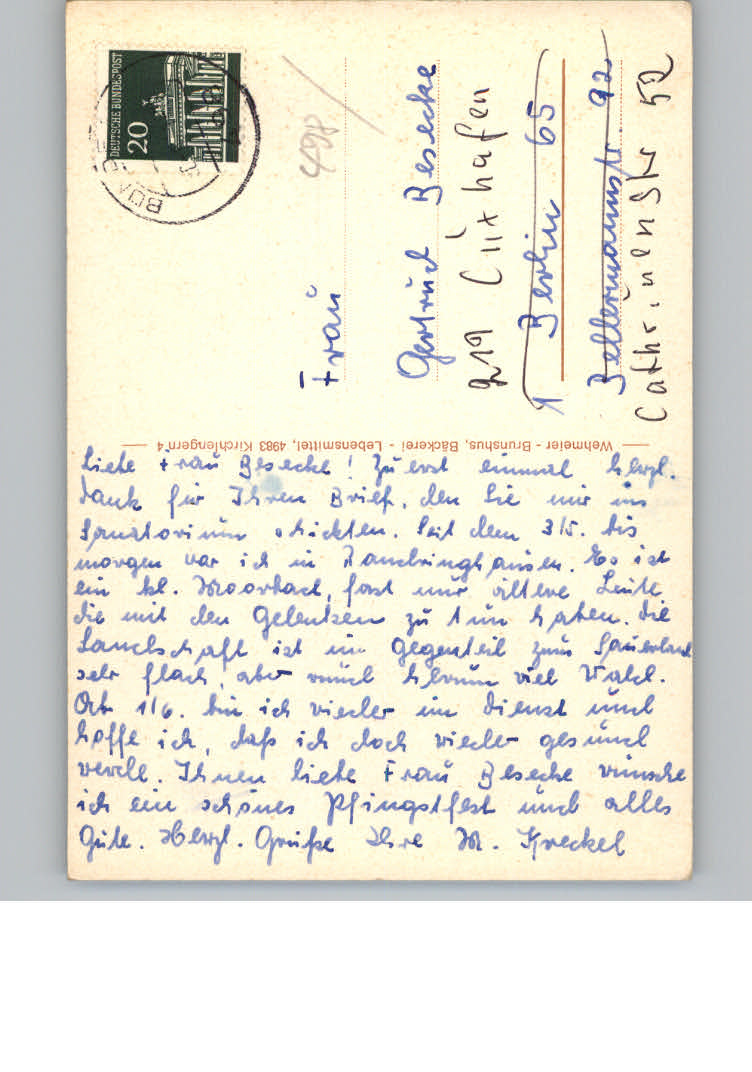 DEUTSCHE BUNDESPOST
20
498
Frau
Gertrud Besecke
219 Cuxhafen
1 Berlin 65
Bellermannstr. 92
Cathrinenstr 52
Wehmeier - Brunshus, Bäckerei - Lebensmittel, 4983 Kirchlengern 4
Liebe Frau Besecke! Zu erst einmal herzl.
Dank für Ihren Brief, den Sie mir ins
Sanatorium schickten. Seit dem 3/5. bis
morgen war ich in Randringhausen. Es ist
ein kl. Moorbad, fast nur ältere Leute
die mit den Gelenken zu tun haben. Die
Landschaft ist im Gegenteil zum Sauerland
sehr flach, aber rund herum viel Wald.
Ab 1/6. bin ich wieder im Dienst und
hoffe ich, daß ich doch wieder gesund
werde. Ihnen liebe Frau Besecke wünsche
ich ein schönes Pfingstfest und alles
Gute. Herzl. Grüße Ihre M. Kreckel